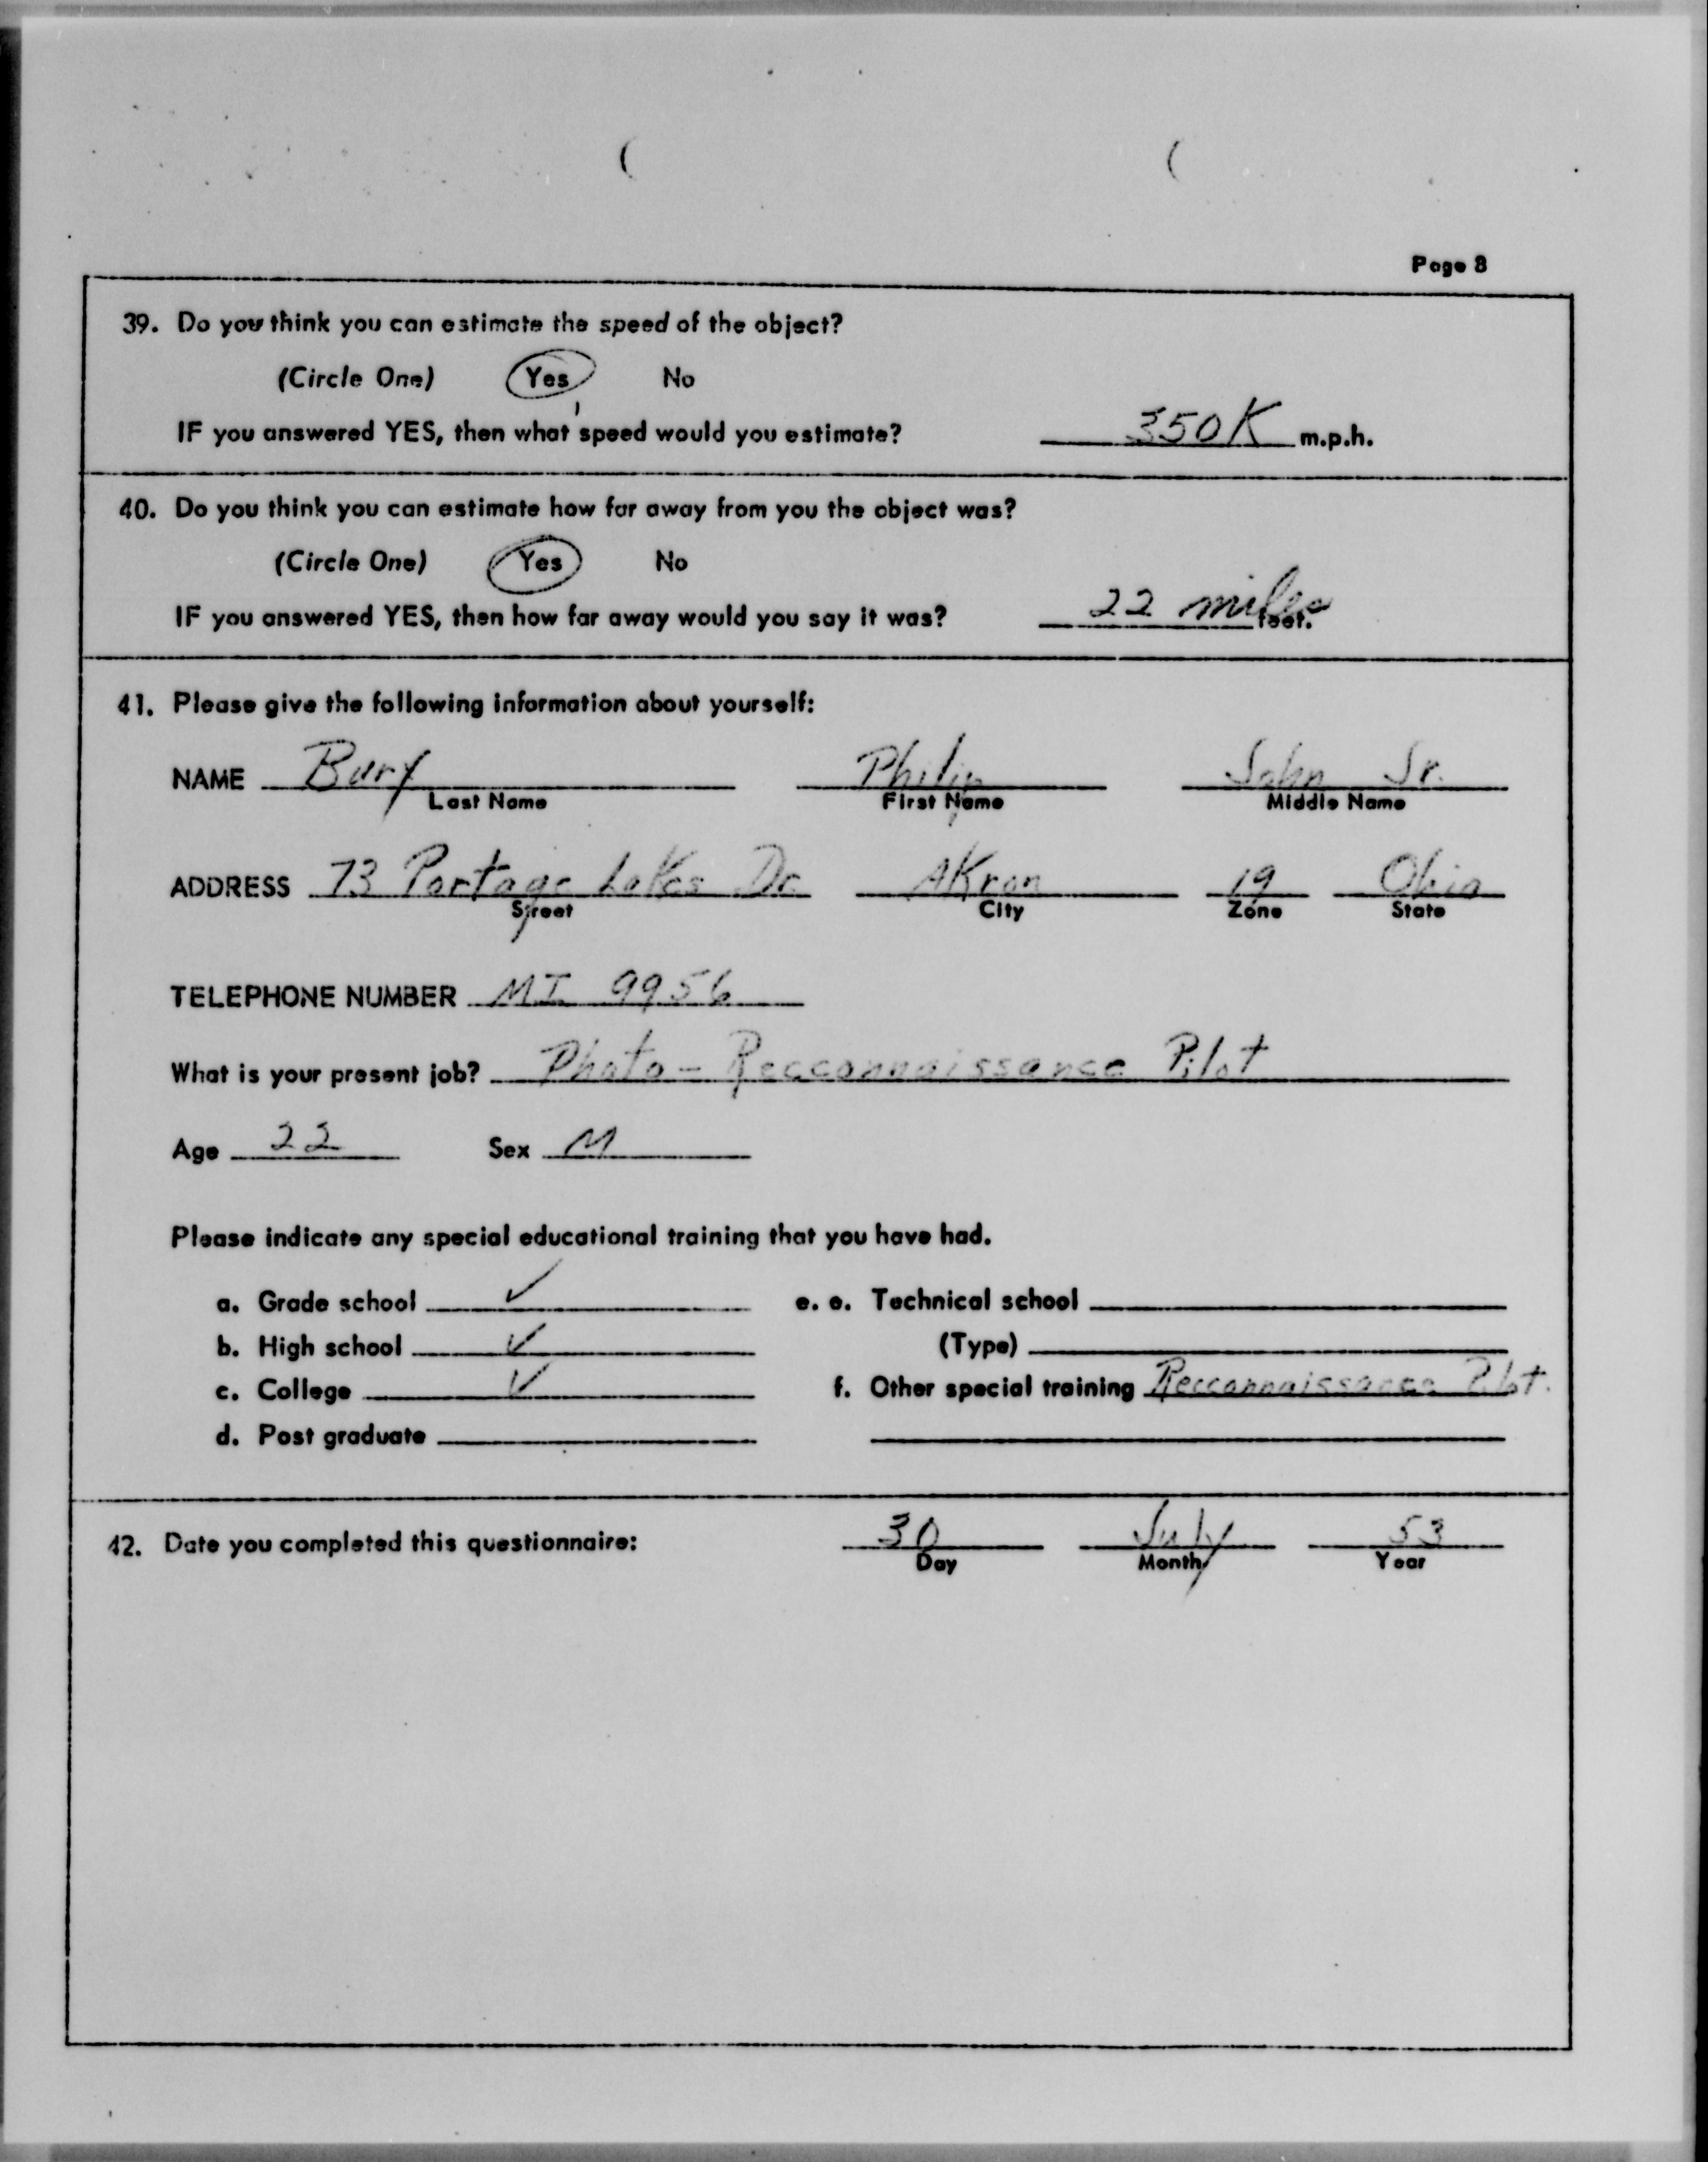 Page 8
39. Do you think you can estimate the speed of the object?
(Circle One) Yes No
IF you answered YES, then what speed would you estimate? 350K m.p.h.
40. Do you think you can estimate how far away from you the object was?
(Circle One) Yes No
IF you answered YES, then how far away would you say it was? 22 miles feet.
41. Please give the following information about yourself:
NAME Bury Philip John Jr.
Last Name First Name Middle Name
ADDRESS 73 Portage Lakes Dr. Akron 19 Ohio
Street City Zone State
TELEPHONE NUMBER MI 9956
What is your present job? Photo - Recconnaissance Pilot
Age 22 Sex M
Please indicate any special educational training that you have had.
a. Grade school ✓ e. e. Technical school
b. High school ✓ (Type)
c. College ✓ f. Other special training Recconnaissance Pilot.
d. Post graduate
42. Date you completed this questionnaire: 30 July 53
Day Month Year